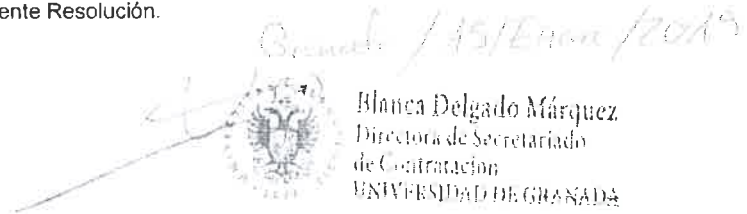 ente Resolución.
Granada / 15/Enero /2019
Blanca Delgado Márquez
Directora de Secretariado
de Contratación
UNIVERSIDAD DE GRANADA